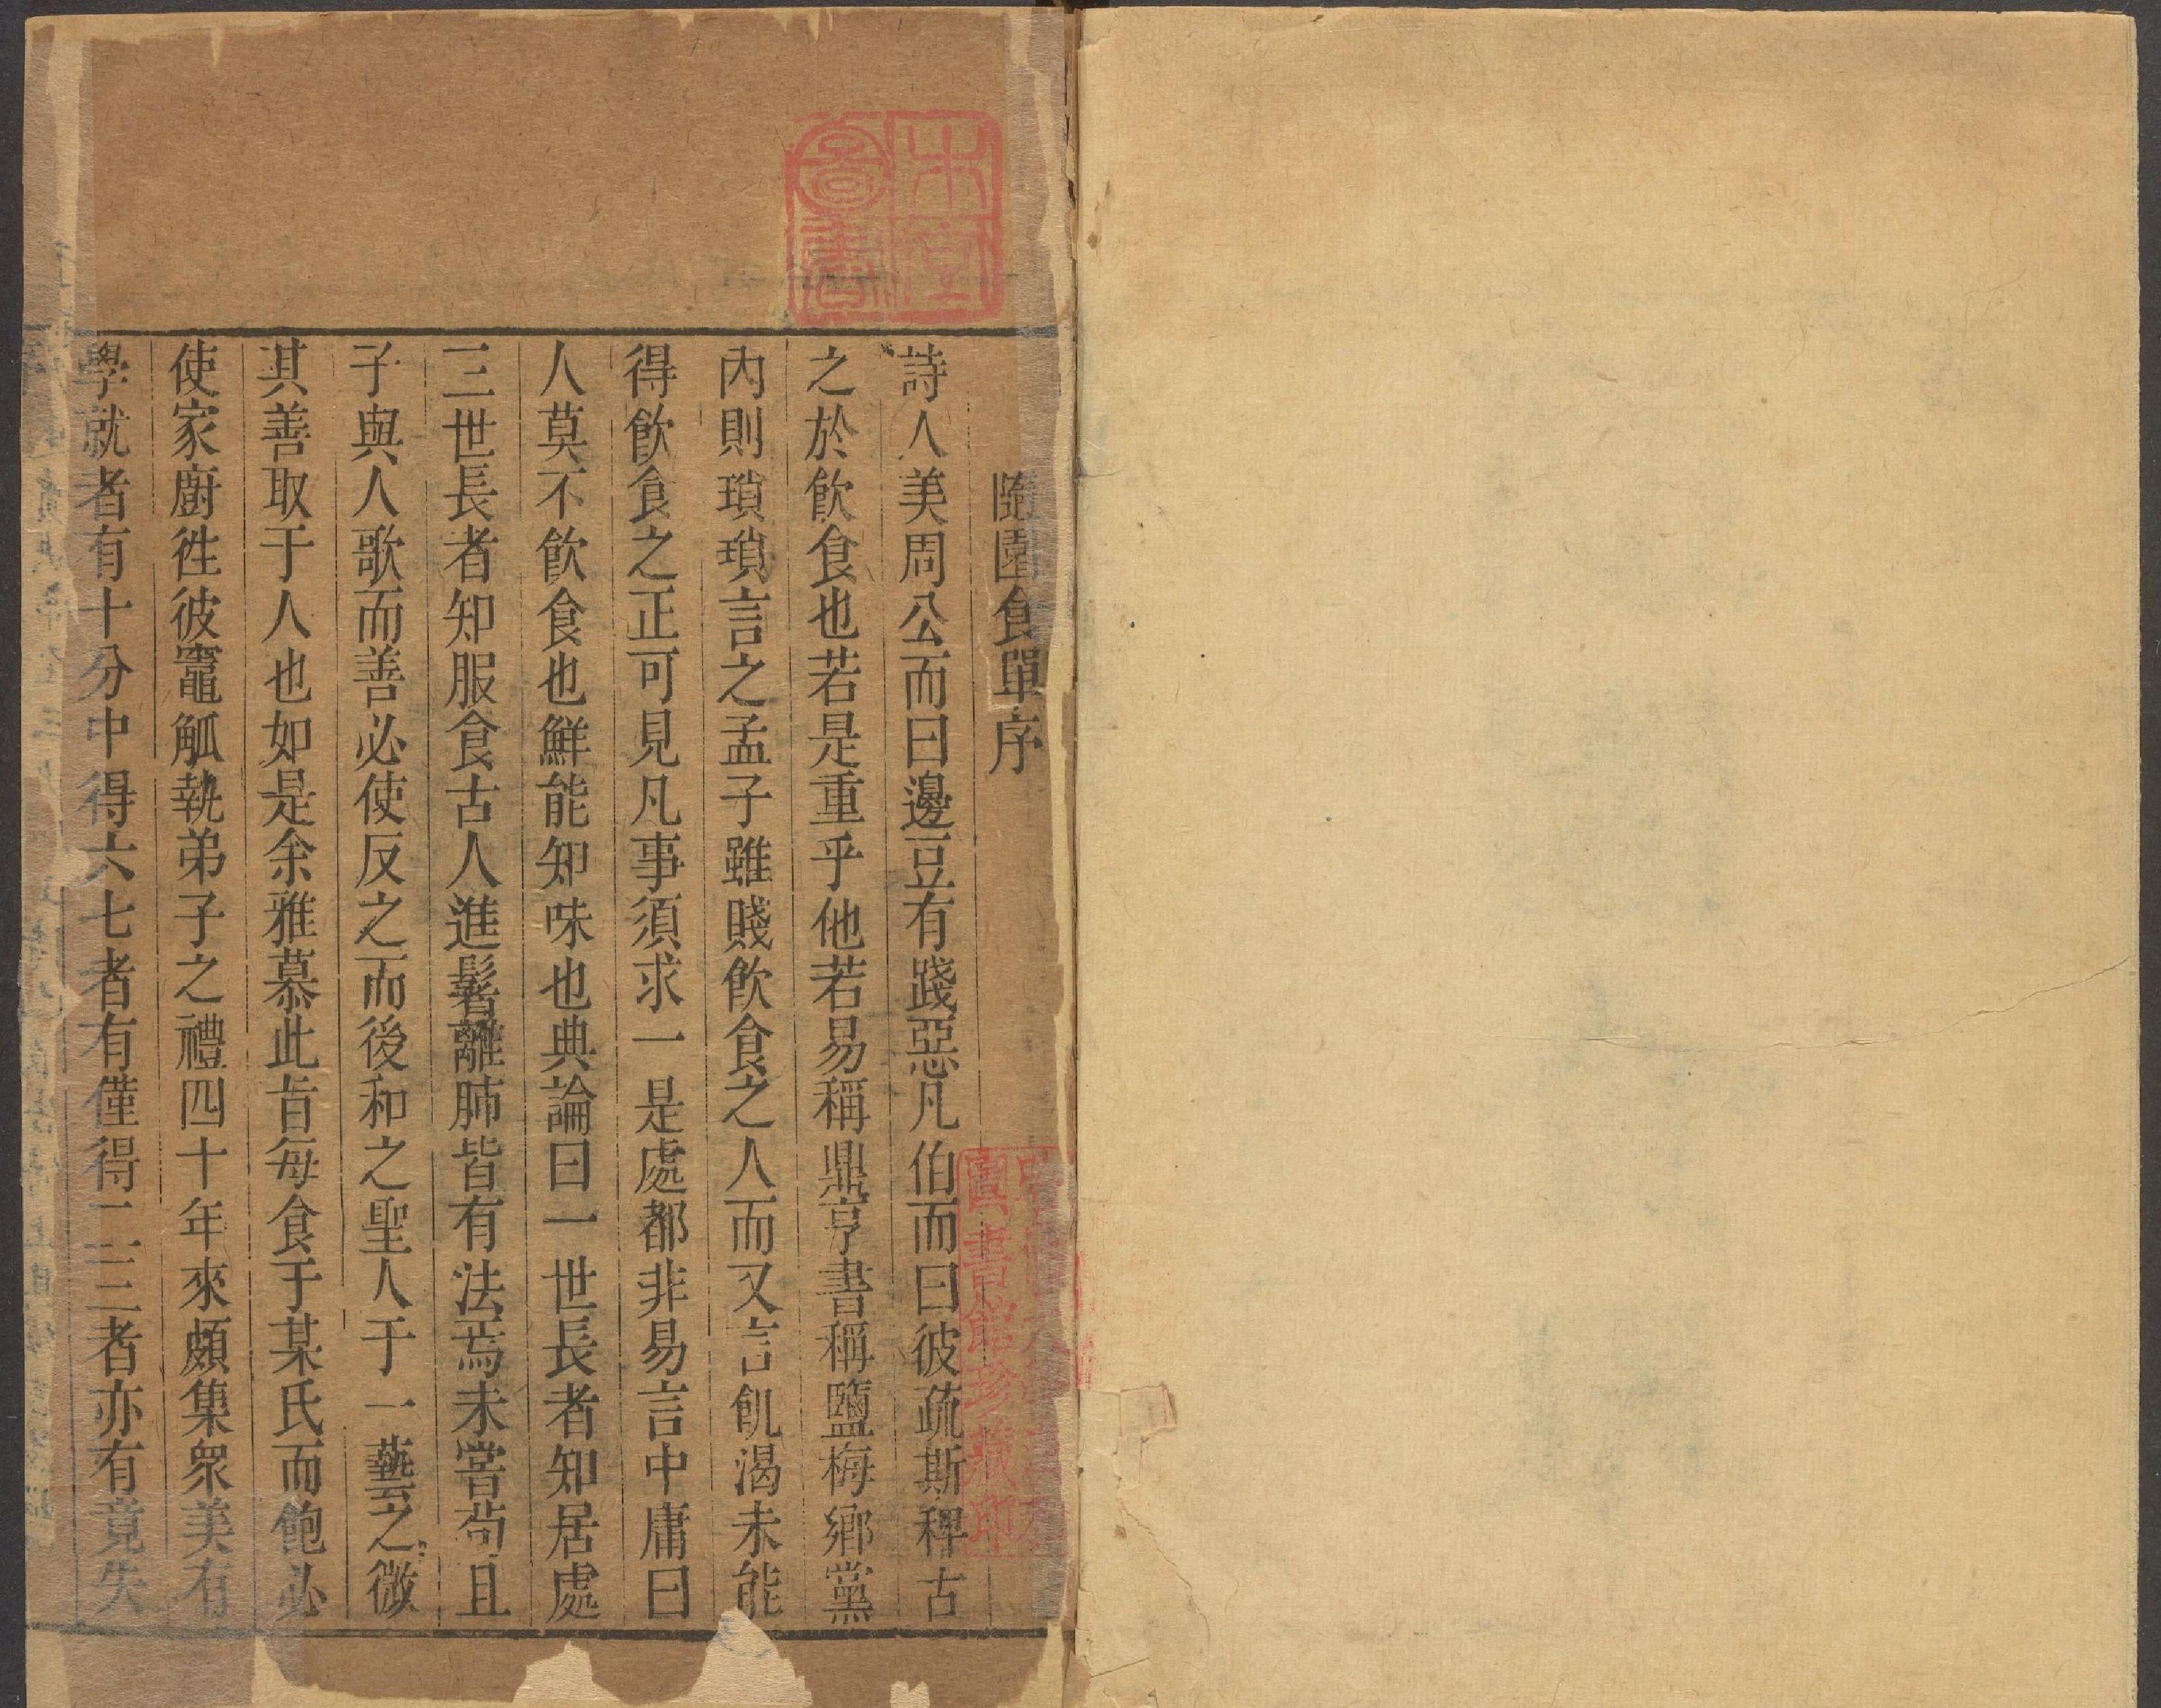 隨園食單序
詩人美周公而曰邊豆有踐惡凡伯而曰彼疏斯稗古
之於飲食也若是重乎他若易稱鼎亨書稱鹽梅鄉黨
內則瑣瑣言之孟子雖賤飲食之人而又言飢渴未能
得飲食之正可見凡事須求一是處都非易言中庸曰
人莫不飲食也鮮能知味也典論曰一世長者知居處
三世長者知服食古人進鬐離肺皆有法焉未嘗苟且
子與人歌而善必使反之而後和之聖人于一藝之微
其善取于人也如是余雅慕此旨每食于某氏而飽必
使家廚徃彼竈觚執弟子之禮四十年來頗集眾美有
學就者有十分中得六七者有僅得二三者亦有竟失
圖書館珍藏印